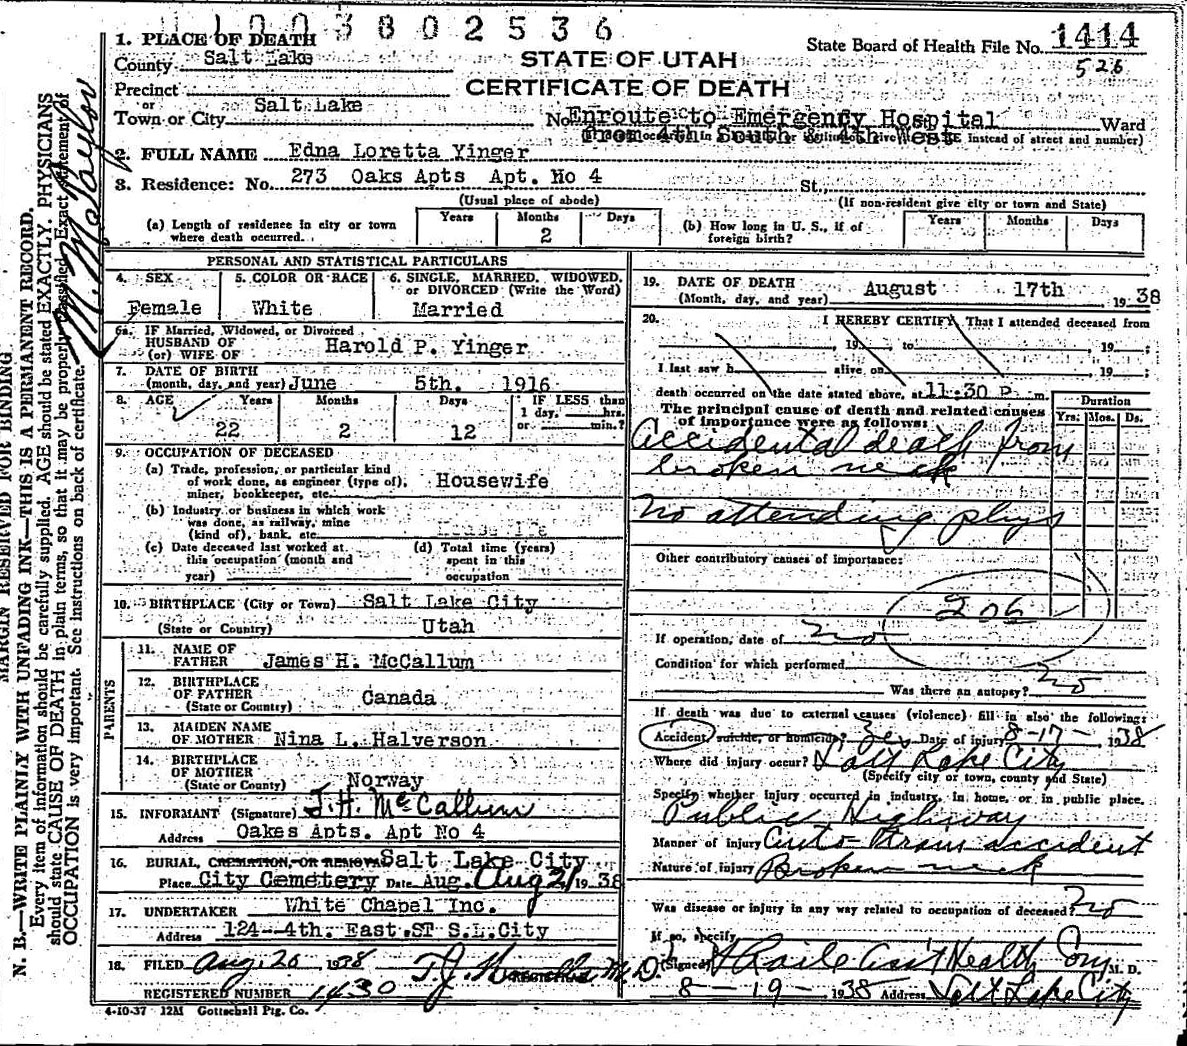 1003802536
1. PLACE OF DEATH
County Salt Lake
STATE OF UTAH
State Board of Health File No. 1414
526
Precinct
CERTIFICATE OF DEATH
or
Town or City Salt Lake
No. Enroute to Emergency Hospital Ward
from 4th South & 4th West instead of street and number)
2. FULL NAME Edna Loretta Yinger
3. Residence: No. 273 Oaks Apts Apt. No 4 St.,
(Usual place of abode) (If non-resident give city or town and State)
(a) Length of residence in city or town where death occurred. Years Months 2 Days
(b) How long in U. S., if of foreign birth? Years Months Days
PERSONAL AND STATISTICAL PARTICULARS
4. SEX Female
5. COLOR OR RACE White
6. SINGLE, MARRIED, WIDOWED, or DIVORCED (Write the Word) Married
6a. IF Married, Widowed, or Divorced
HUSBAND OF
(or) WIFE OF Harold P. Yinger
7. DATE OF BIRTH
(month, day, and year) June 5th. 1916
8. AGE Years 22 Months 2 Days 12 IF LESS than 1 day, hrs. or min.?
9. OCCUPATION OF DECEASED
(a) Trade, profession, or particular kind
of work done, as engineer (type of),
miner, bookkeeper, etc. Housewife
(b) Industry or business in which work
was done, as railway, mine
(kind of), bank, etc.
(c) Date deceased last worked at
this occupation (month and
year)
(d) Total time (years)
spent in this
occupation
10. BIRTHPLACE (City or Town) Salt Lake City
(State or Country) Utah
PARENTS
11. NAME OF
FATHER James H. McCallum
12. BIRTHPLACE
OF FATHER
(State or Country) Canada
13. MAIDEN NAME
OF MOTHER Nina L. Halverson
14. BIRTHPLACE
OF MOTHER
(State or Country) Norway
15. INFORMANT (Signature) J. H. McCallum
Address Oakes Apts. Apt No 4
16. BURIAL, CREMATION, OR REMOVAL Salt Lake City
Place City Cemetery Date Aug. Aug 21 1938
17. UNDERTAKER White Chapel Inc.
Address 124--4th. East ST S.L.City
18. FILED Aug. 20 1938
REGISTERED NUMBER 1430
4-10-37 12M Gottschall Ptg. Co.
19. DATE OF DEATH
(Month, day, and year) August 17th, 1938
20. I HEREBY CERTIFY, That I attended deceased from
, 19 , to , 19 ;
I last saw h alive on , 19 ;
death occurred on the date stated above, at 11.30 P m.
The principal cause of death and related causes
of importance were as follows:
Duration
Yrs. Mos. Ds.
Accidental death from
broken neck
No attending phys
Other contributory causes of importance:
206
If operation, date of no
Condition for which performed
Was there an autopsy? no
If death was due to external causes (violence) fill in also the following:
Accident, suicide, or homicide? Yes Date of injury 8-17- 1938
Where did injury occur? Salt Lake City
(Specify city or town, county and State)
Specify whether injury occurred in industry, in home, or in public place.
Public Highway
Manner of injury Auto Tram accident
Nature of injury Broken neck
Was disease or injury in any way related to occupation of deceased? no
If so, specify
(Signed) Health M. D.
8-19- 1938 Address Salt Lake City
MARGIN RESERVED FOR BINDING
N. B.—WRITE PLAINLY WITH UNFADING INK—THIS IS A PERMANENT RECORD.
Every item of information should be carefully supplied. AGE should be stated EXACTLY. PHYSICIANS
should state CAUSE OF DEATH in plain terms, so that it may be properly classified. Exact statement of
OCCUPATION is very important. See instructions on back of certificate.